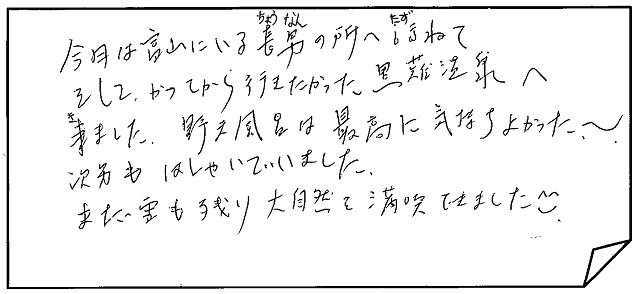 今月は富山にいる長男の所へ訪ねて
そして、かつてから行きたかった黒薙温泉へ
来ました。野天風呂は最高に気持ちよかった〜。
次男もはしゃいでいました。
まだ雪も残り大自然を満喫できました